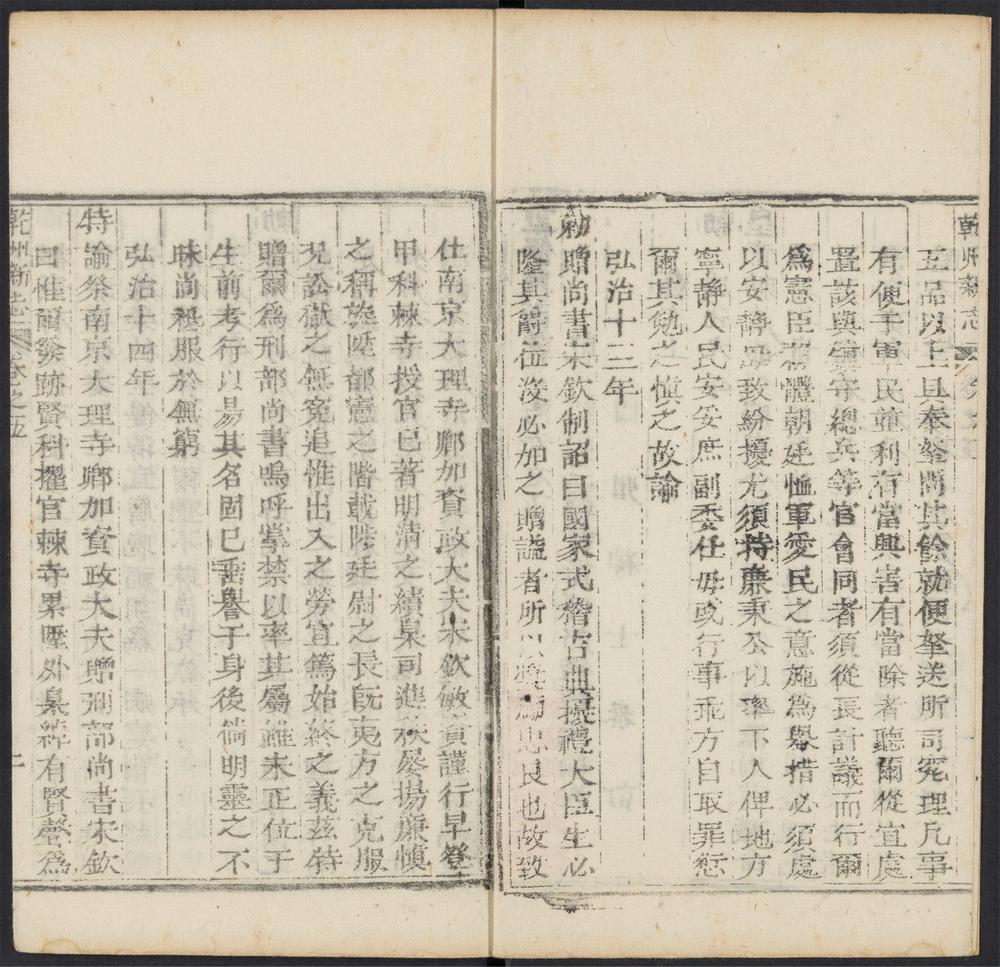 乾州新志
五品以上具奏拏問其餘就便拏送所司究理凡事
有便于軍民並利有當興害有當除者聽爾從宜處
置該與鎮守總兵等官會同者須從長計議而行爾
為憲臣務體朝廷恤軍愛民之意施為舉措必須處
以安靜毋致紛擾尤須持廉秉公以率下人俾地方
寧靜人民安妥庶副委任毋或行事乖方自取罪愆
爾其勉之慎之故諭
弘治十三年
勑贈尚書宋欽制詔曰國家式稽古典擾禮大臣生必
隆其爵位沒必加之贈謚者所以獎勵忠良也故致
仕南京大理寺卿加資政大夫宋欽敏資謹行早登
甲科棘寺授官已著明清之績臬司進秩屡揚廉慎
之稱旋陞都憲之階載陟廷尉之長旣夷方之克服
况訟獄之無冤追惟出入之勞宜篤始終之義茲特
贈爾為刑部尚書嗚呼掌禁以率其屬雖未正位于
生前考行以易其名固已垂譽于身後倘明靈之不
昧尚祗服於無窮
弘治十四年
特諭祭南京大理寺卿加資政大夫贈刑部尚書宋欽
曰惟爾發跡賢科擢官棘寺累陞外臬綽有賢聲為
乾州新志 卷之五